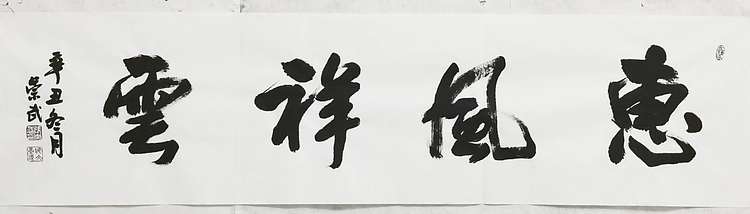 惠風祥雲
辛丑冬月
崇武